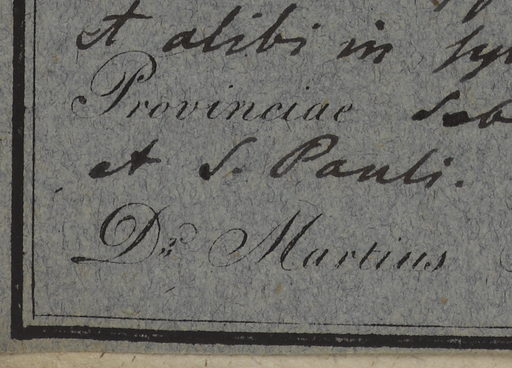 et alibi in syl
Provinciae Seb
et S. Pauli.
Dr. Martius